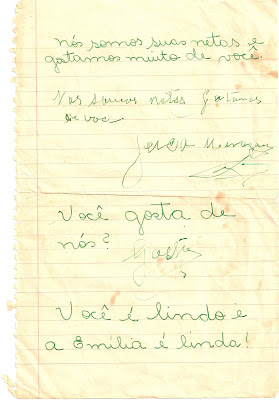 nós somos suas netas e
gostamos muito de você.
Nos somos netas Gostamos
de voce
Você gosta de
nós?
Gosta
Você é lindo e
a Emília é linda!